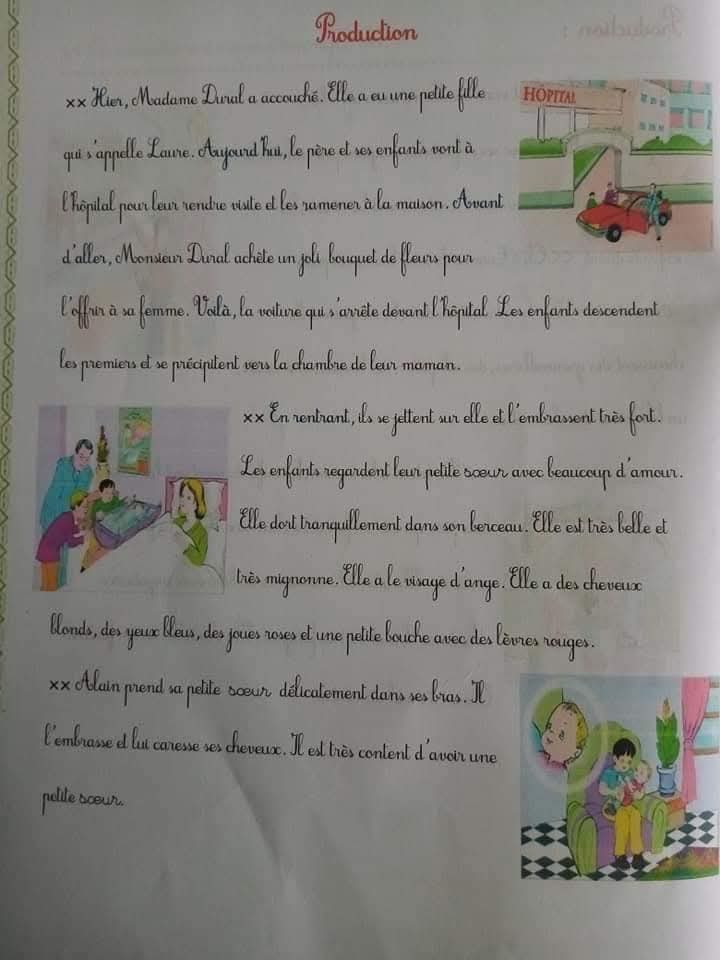 Production
xx Hier, Madame Dural a accouché. Elle a eu une petite fille
HÔPITAL
qui s'appelle Laure. Aujourd'hui, le père et ses enfants vont à
l'hôpital pour leur rendre visite et les ramener à la maison. Avant
d'aller, Monsieur Dural achète un joli bouquet de fleurs pour
l'offrir à sa femme. Voilà, la voiture qui s'arrête devant l'hôpital. Les enfants descendent
les premiers et se précipitent vers la chambre de leur maman.
xx En rentrant, ils se jettent sur elle et l'embrassent très fort.
Les enfants regardent leur petite sœur avec beaucoup d'amour.
Elle dort tranquillement dans son berceau. Elle est très belle et
très mignonne. Elle a le visage d'ange. Elle a des cheveux
blonds, des yeux bleus, des joues roses et une petite bouche avec des lèvres rouges.
xx Alain prend sa petite sœur délicatement dans ses bras. Il
l'embrasse et lui caresse ses cheveux. Il est très content d'avoir une
petite sœur.